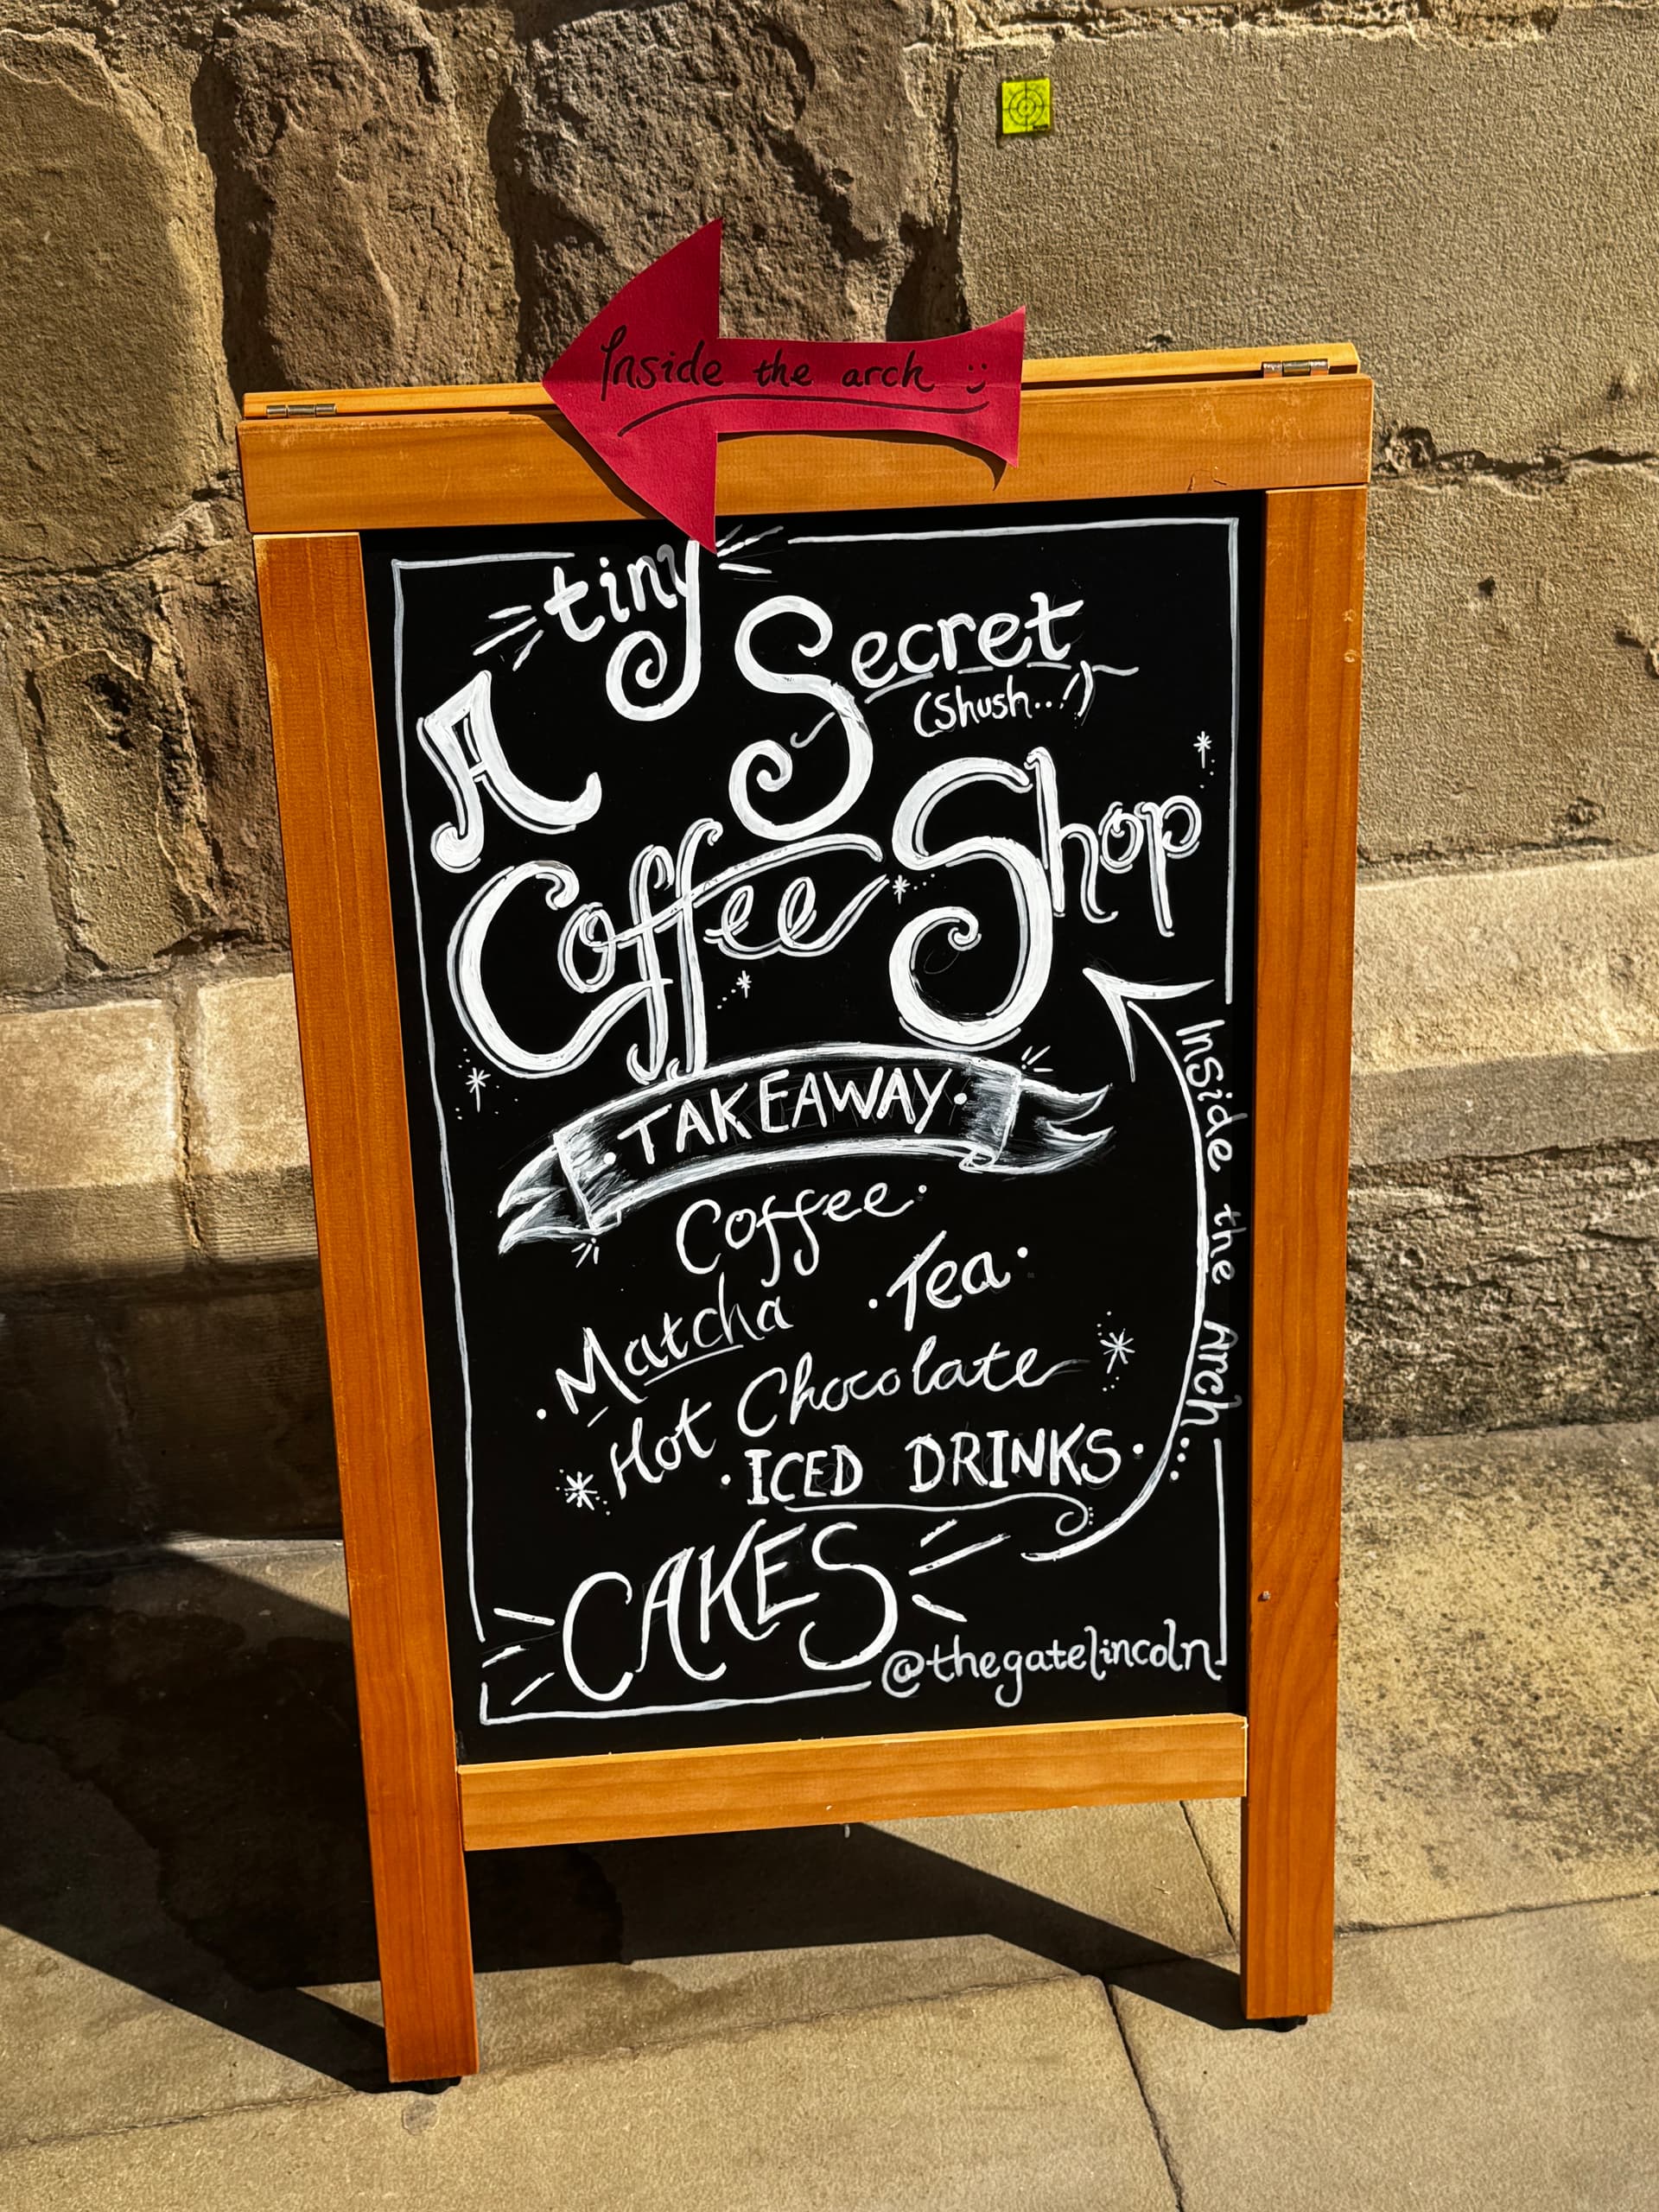 Inside the arch :)
A tiny Secret
(Shush..!)
Coffee Shop
·TAKEAWAY·
Coffee·
·Matcha
·Tea·
Hot Chocolate
·ICED DRINKS·
CAKES
Inside the Arch...
@thegatelincoln